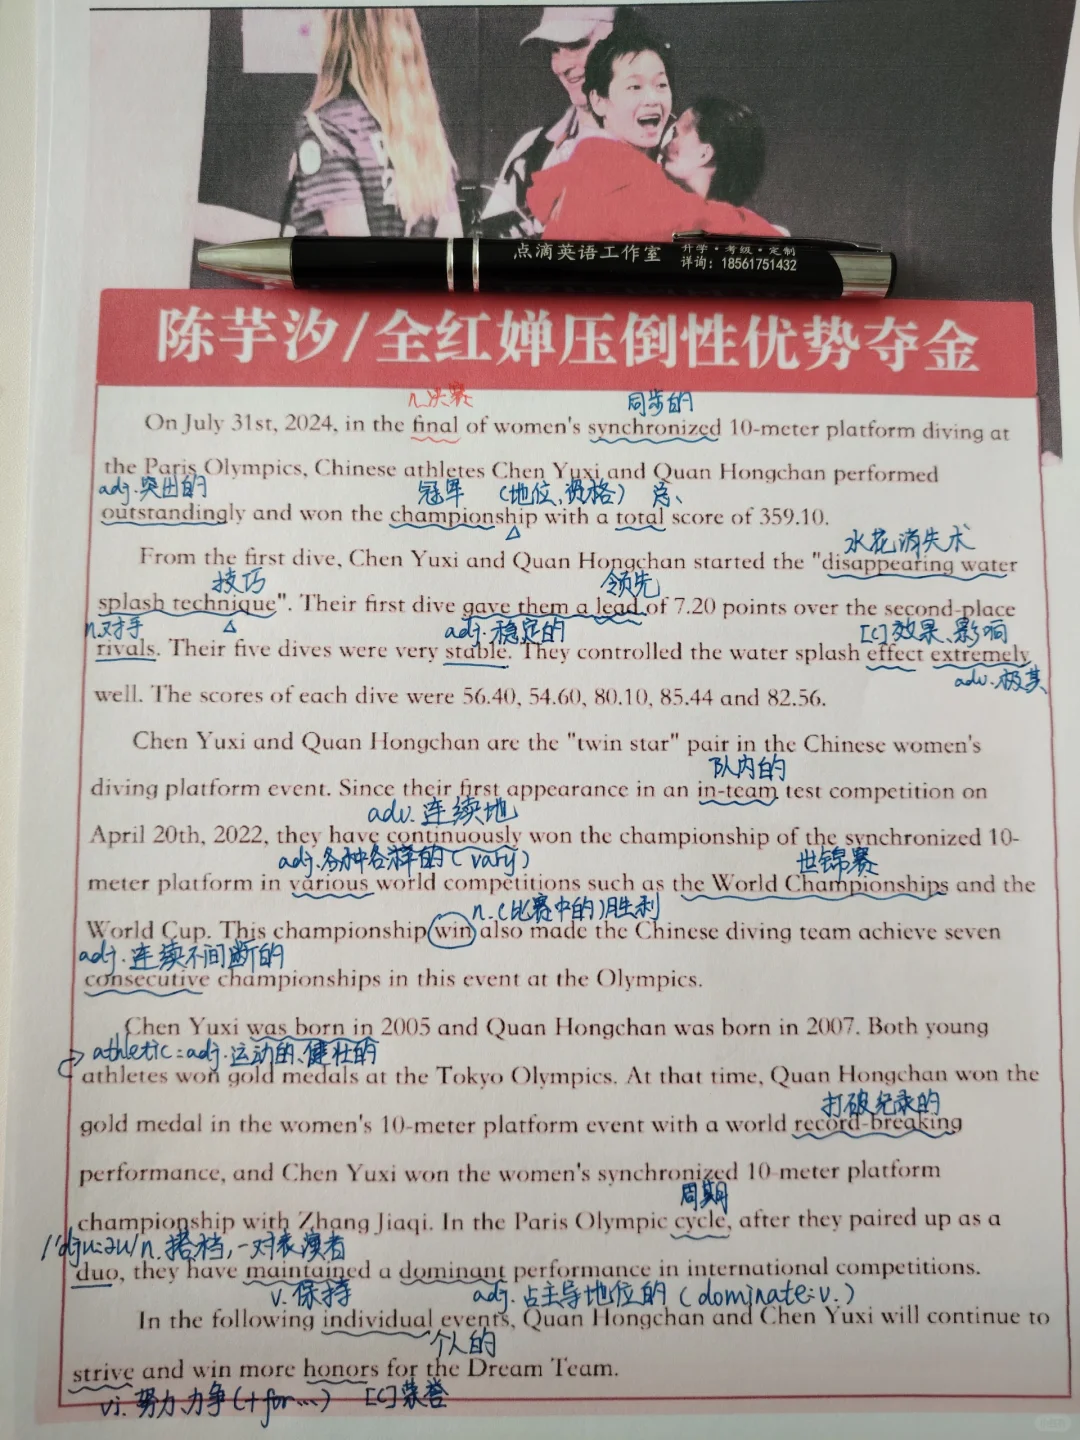 点滴英语工作室 升学·考级·定制
详询：18561751432
陈芋汐/全红婵压倒性优势夺金
n.决赛 同步的
On July 31st, 2024, in the final of women's synchronized 10-meter platform diving at
the Paris Olympics, Chinese athletes Chen Yuxi and Quan Hongchan performed
adj.突出的 冠军 (地位、资格) 总、
outstandingly and won the championship with a total score of 359.10.
水花消失术
From the first dive, Chen Yuxi and Quan Hongchan started the "disappearing water
技巧 领先
splash technique". Their first dive gave them a lead of 7.20 points over the second-place
n.对手 adj.稳定的 [C]效果、影响
rivals. Their five dives were very stable. They controlled the water splash effect extremely
adv.极其
well. The scores of each dive were 56.40, 54.60, 80.10, 85.44 and 82.56.
Chen Yuxi and Quan Hongchan are the "twin star" pair in the Chinese women's
队内的
diving platform event. Since their first appearance in an in-team test competition on
adv.连续地
April 20th, 2022, they have continuously won the championship of the synchronized 10-
adj.各种各样的(vary) 世锦赛
meter platform in various world competitions such as the World Championships and the
n.(比赛中的)胜利
World Cup. This championship win also made the Chinese diving team achieve seven
adj.连续不间断的
consecutive championships in this event at the Olympics.
Chen Yuxi was born in 2005 and Quan Hongchan was born in 2007. Both young
athletic:adj.运动的、健壮的
athletes won gold medals at the Tokyo Olympics. At that time, Quan Hongchan won the
打破纪录的
gold medal in the women's 10-meter platform event with a world record-breaking
performance, and Chen Yuxi won the women's synchronized 10-meter platform
周期
championship with Zhang Jiaqi. In the Paris Olympic cycle, after they paired up as a
/'djuːəu/n.搭档,一对表演者
duo, they have maintained a dominant performance in international competitions.
v.保持 adj.占主导地位的(dominate:v.)
In the following individual events, Quan Hongchan and Chen Yuxi will continue to
个人的
strive and win more honors for the Dream Team.
vi.努力、力争(+for...) [C]荣誉